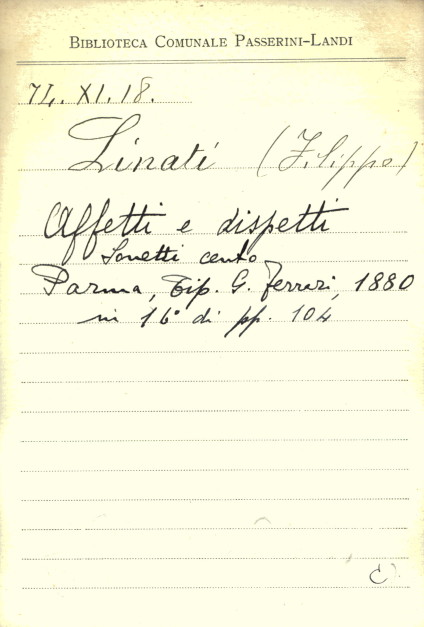 BIBLIOTECA COMUNALE PASSERINI-LANDI
7L. XI. 18.
Linati (Filippo)
Affetti e dispetti
Sonetti cento
Parma, Tip. G. Ferrari, 1880
in 16° di pp. 104